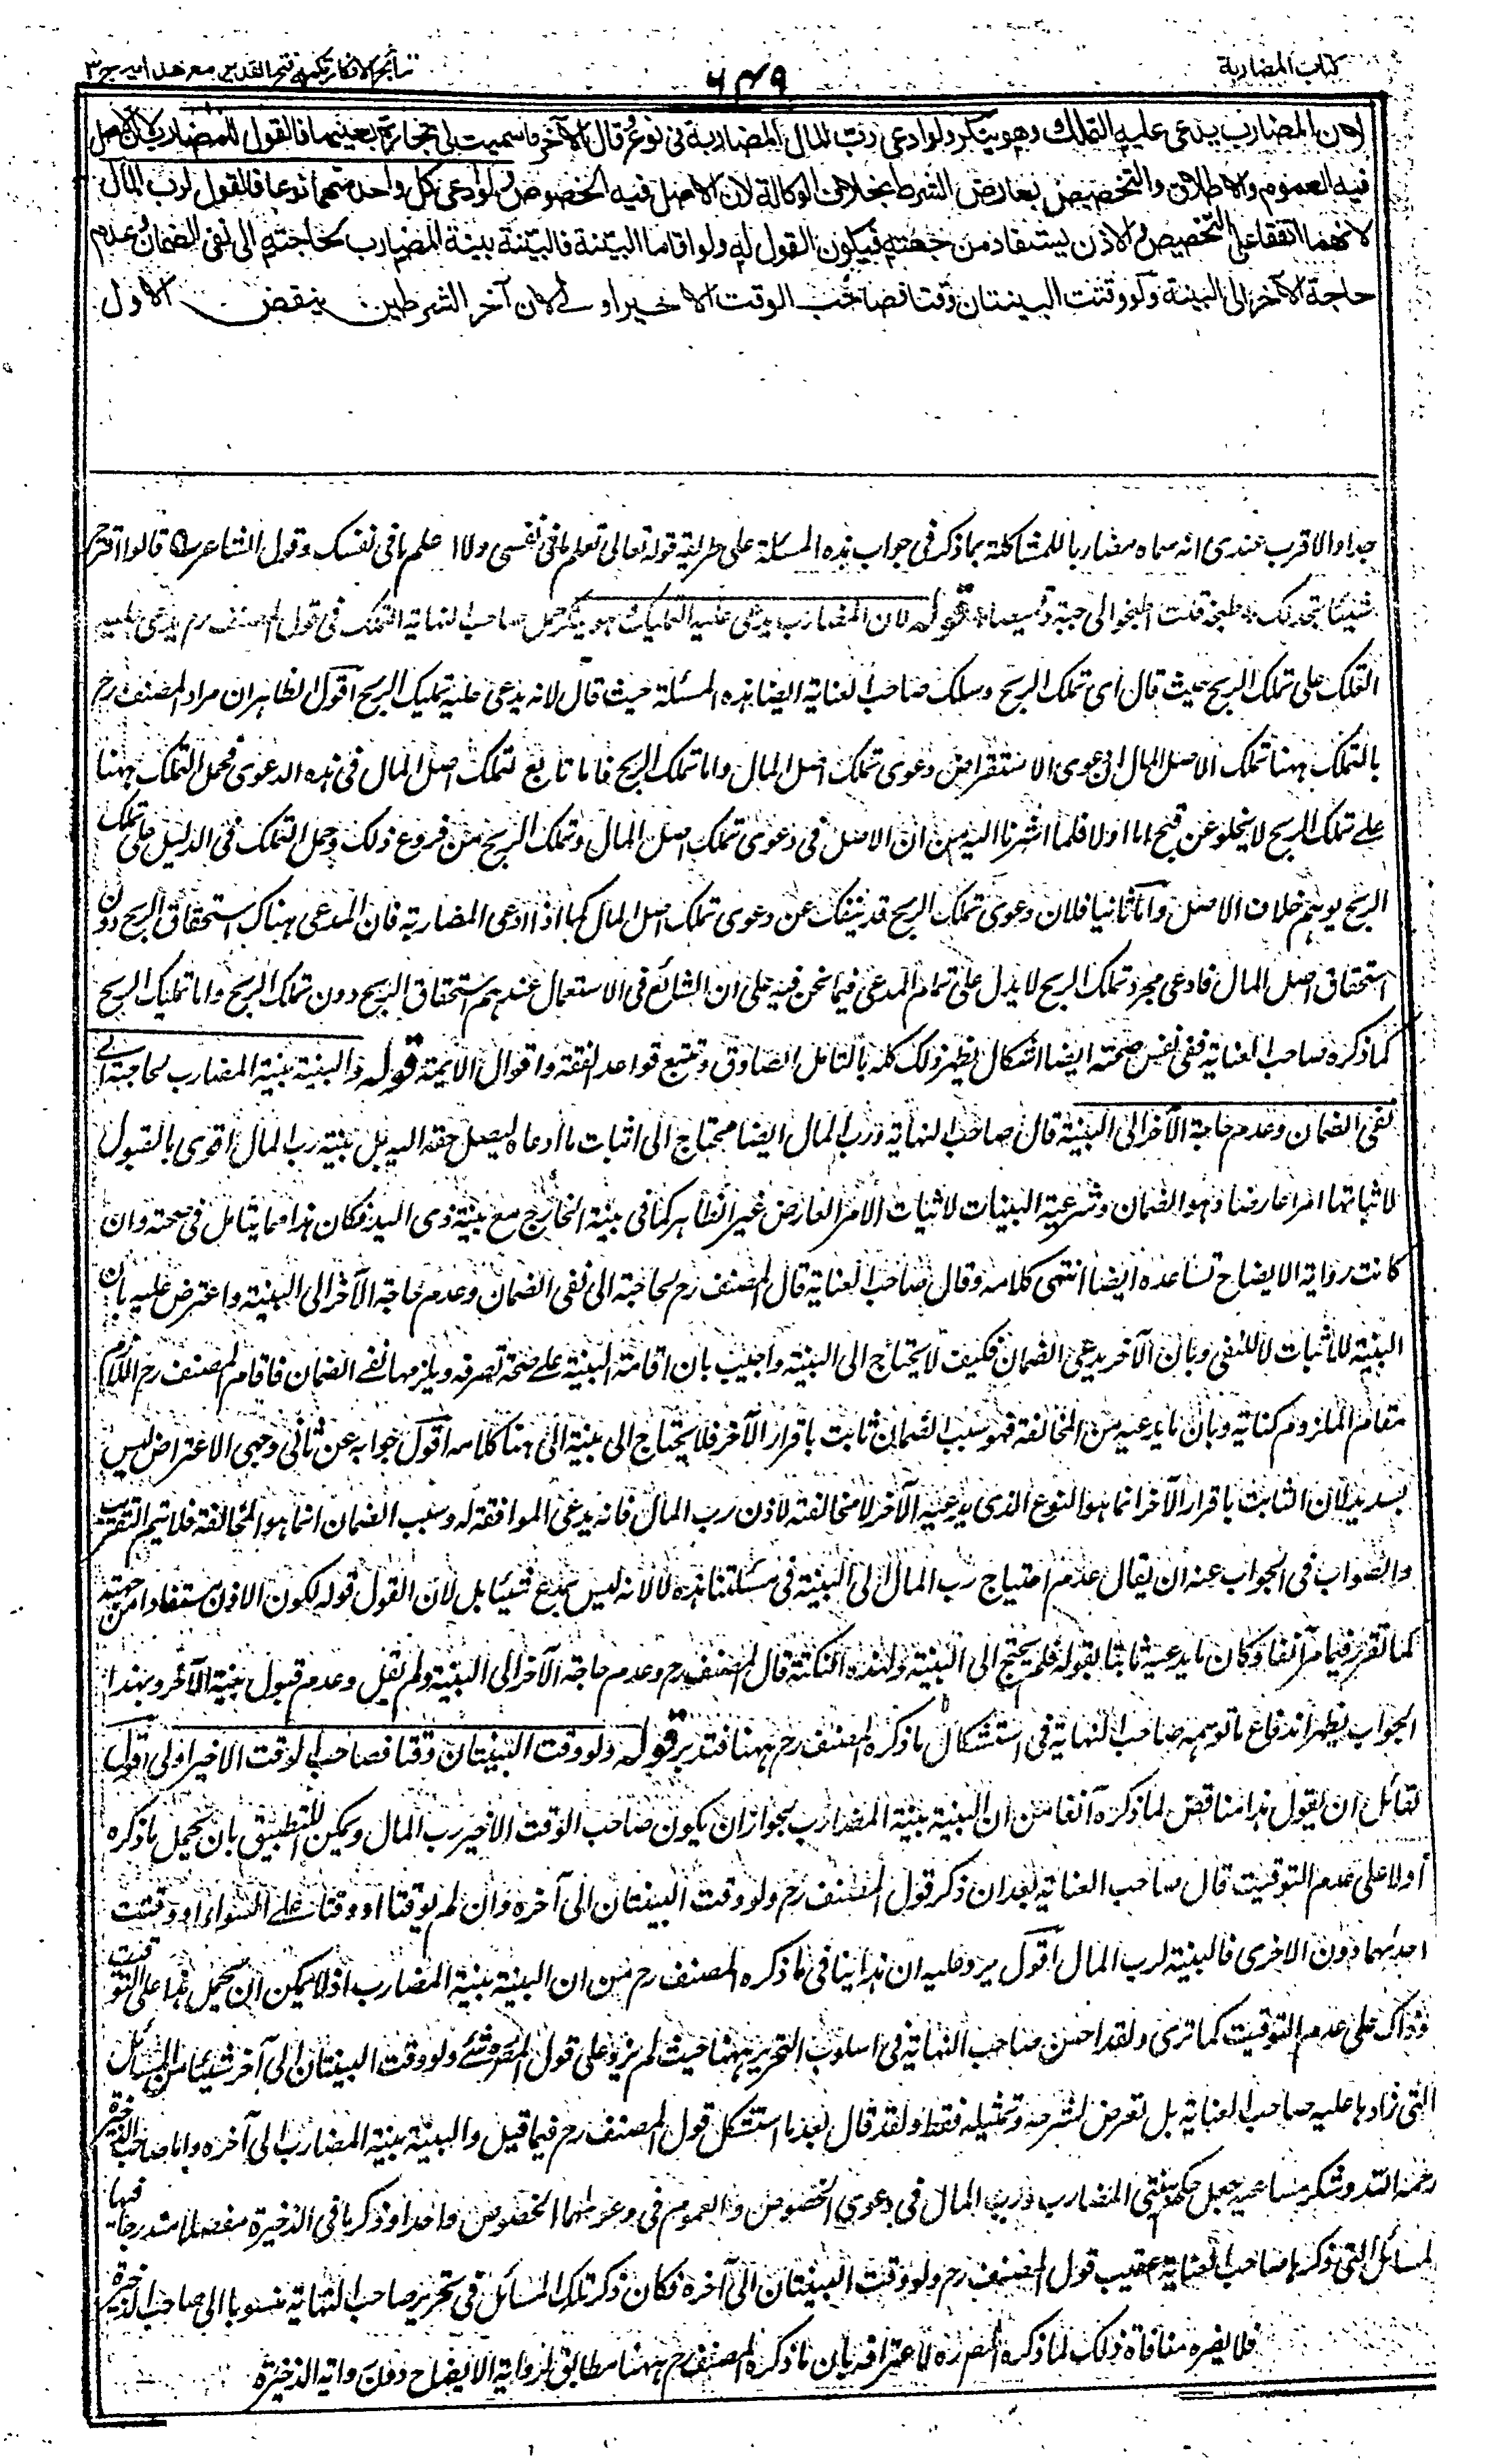 كتاب المضاربة
٦٤٩
نتائج الافكار تكملة فتح القدير مع هداية ج ٣
لان المضارب يدعى عليه التملك وهو ينكر ولو ادعى رب المال المضاربة فى نوع وقال الآخر ما سميت لى تجارة بعينها فالقول للمضارب لان الاصل
فيه العموم والاطلاق والتخصيص بعارض الشرط بخلاف الوكالة لان الاصل فيه الخصوص ولو ادعى كل واحد منهما نوعا فالقول لرب المال
لانهما اتفقا على التخصيص والاذن يستفاد من جهته فيكون القول له ولو اقاما البينة فالبينة بينة المضارب لحاجته الى نفى الضمان وعدم
حاجة الآخر الى البينة ولو وقتت البينتان وقتا فصاحب الوقت الاخير اولى لان آخر الشرطين ينقض الاول
جدا والاقرب عندى انه سماه مضاربا للمشاكلة بما ذكر فى جواب هذه المسئلة على طريقة قوله تعالى تعلم ما فى نفسى ولا اعلم ما فى نفسك وقول الشاعر قالوا اقترح
شيئا نجد لك طبخه قلت اطبخوا لى جبة وقميصا قوله لان المضارب يدعى عليه التمليك وهو ينكر حمل صاحب النهاية التملك فى قول المصنف رح يدعى عليه
التملك على تملك الربح حيث قال اى تملك الربح وسلك صاحب العناية ايضا هذه المسئلة حيث قال لانه يدعى عليه تمليك الربح اقول الظاهر ان مراد المصنف رح
بالتملك ههنا تملك الاصل المال اذ دعوى الاستقراض دعوى تملك اصل المال واما تملك الربح فانما تابع لتملك اصل المال فى هذه الدعوى فحمل التملك ههنا
على تملك الربح لا يخلو عن قبح اما اولا فلما اشرنا اليه من ان الاصل فى دعوى تملك اصل المال وتملك الربح من فروع ذلك وحمل التملك فى الدليل على تملك
الربح يوهم خلاف الاصل واما ثانيا فلان دعوى تملك الربح قد ينفك عن دعوى تملك اصل المال كما اذا ادعى المضاربة فان المدعى هناك استحقاق الربح دون
استحقاق اصل المال فادعى مجرد تملك الربح لا يدل على تمام المدعى فيما نحن فيه على ان الشائع فى الاستعمال عندهم استحقاق الربح دون تملك الربح واما تمليك الربح
كما ذكره صاحب العناية ففى نفس صحته ايضا اشكال يظهر ذلك كله بالتامل الصادق وتتبع قواعد الفقه واقوال الايمة قوله والبينة بينة المضارب لحاجته الى
نفى الضمان وعدم حاجة الآخر الى البينة قال صاحب النهاية ورب المال ايضا محتاج الى اثبات ما ادعاه ليصل حقه اليه بل بينة رب المال اقوى بالقبول
لاثباتها امرا عارضا وهو الضمان وشرعية البينات لاثبات الامر العارض غير الظاهر كما فى بينة الخارج مع بينة ذى اليد فكان هذا مما يتامل فى صحته وان
كانت رواية الايضاح تساعده ايضا انتهى كلامه وقال صاحب العناية قال المصنف رح لحاجته الى نفى الضمان وعدم حاجة الآخر الى البينة واعترض عليه بان
البينة للاثبات لا للنفى وبان الآخر يدعى الضمان فكيف لا يحتاج الى البينة واجيب بان اقامة البينة على صحة تصرفه ويلزمها نفى الضمان فاقام المصنف رح اللازم
مقام الملزوم كناية وبان ما يدعيه من المخالفة فهو سبب الضمان ثابت باقرار الآخر فلا يحتاج الى بينة الى هنا كلامه اقول جوابه عن ثانى وجهى الاعتراض ليس
بسديد لان الثابت باقرار الآخر انما هو النوع الذى يدعيه الآخر لا مخالفته لاذن رب المال فانه يدعى الموافقة له وسبب الضمان انما هو المخالفة فلا يتم التقريب
والصواب فى الجواب عنه ان يقال عدم احتياج رب المال الى البينة فى مسئلتنا هذه لا لانه ليس بمدع شيئا بل لان القول قوله لكون الاذن مستفادا من جهته
كما تقرر فيما مر آنفا وكان ما يدعيه ثابتا بقوله فلم يحتج الى البينة ولهذه النكتة قال المصنف رح وعدم حاجة الآخر الى البينة ولم يقل وعدم قبول بينة الآخر وبهذا
الجواب يظهر اندفاع ما توهمه صاحب النهاية فى استشكال ما ذكره المصنف رح ههنا فتدبر قوله ولو وقت البينتان وقتا فصاحب الوقت الاخير اولى اقول
لقائل ان يقول هذا مناقض لما ذكره آنفا من ان البينة بينة المضارب بجواز ان يكون صاحب الوقت الاخير رب المال ويمكن التطبيق بان يحمل ما ذكره
اولا على عدم التوقيت قال صاحب العناية بعد ان ذكر قول المصنف رح ولو وقت البينتان الى آخره وان لم يوقتا او وقتا على السواء او وقتت
احدهما دون الاخرى فالبينة لرب المال اقول يرد عليه ان هذا ينافى ما ذكره المصنف رح من ان البينة بينة المضارب اذ لا يمكن ان يحمل هذا على التوقيت
وذاك على عدم التوقيت كما ترى ولقد احسن صاحب النهاية فى اسلوب التحرير ههنا حيث لم يزد على قول المصنف ولو وقت البينتان الى آخره شيئا من المسائل
التى زادها عليه صاحب العناية بل تعرض لشرحه وتمثيله فقط ولقد قال بعد ما استشكل قول المصنف رح فيما قيل والبينة بينة المضارب الى آخره واما صاحب الذخيرة
رحمه الله وشكر مساعيه جعل حكم بينتى المضارب ورب المال فى دعوى الخصوص والعموم فى دعواهما الخصوص واحدا وذكرها فى الذخيرة مفصلا مندرجا فيها
المسائل التى ذكرها صاحب العناية عقيب قول المصنف رح ولو وقت البينتان الى آخره فكان ذكر تلك المسائل فى تحرير صاحب النهاية منسوبا الى صاحب الذخيرة
فلا يضره منافاة ذلك لما ذكره المص ره لاعترافه بان ما ذكره المصنف رح ههنا مطابق لرواية الايضاح دون رواية الذخيرة